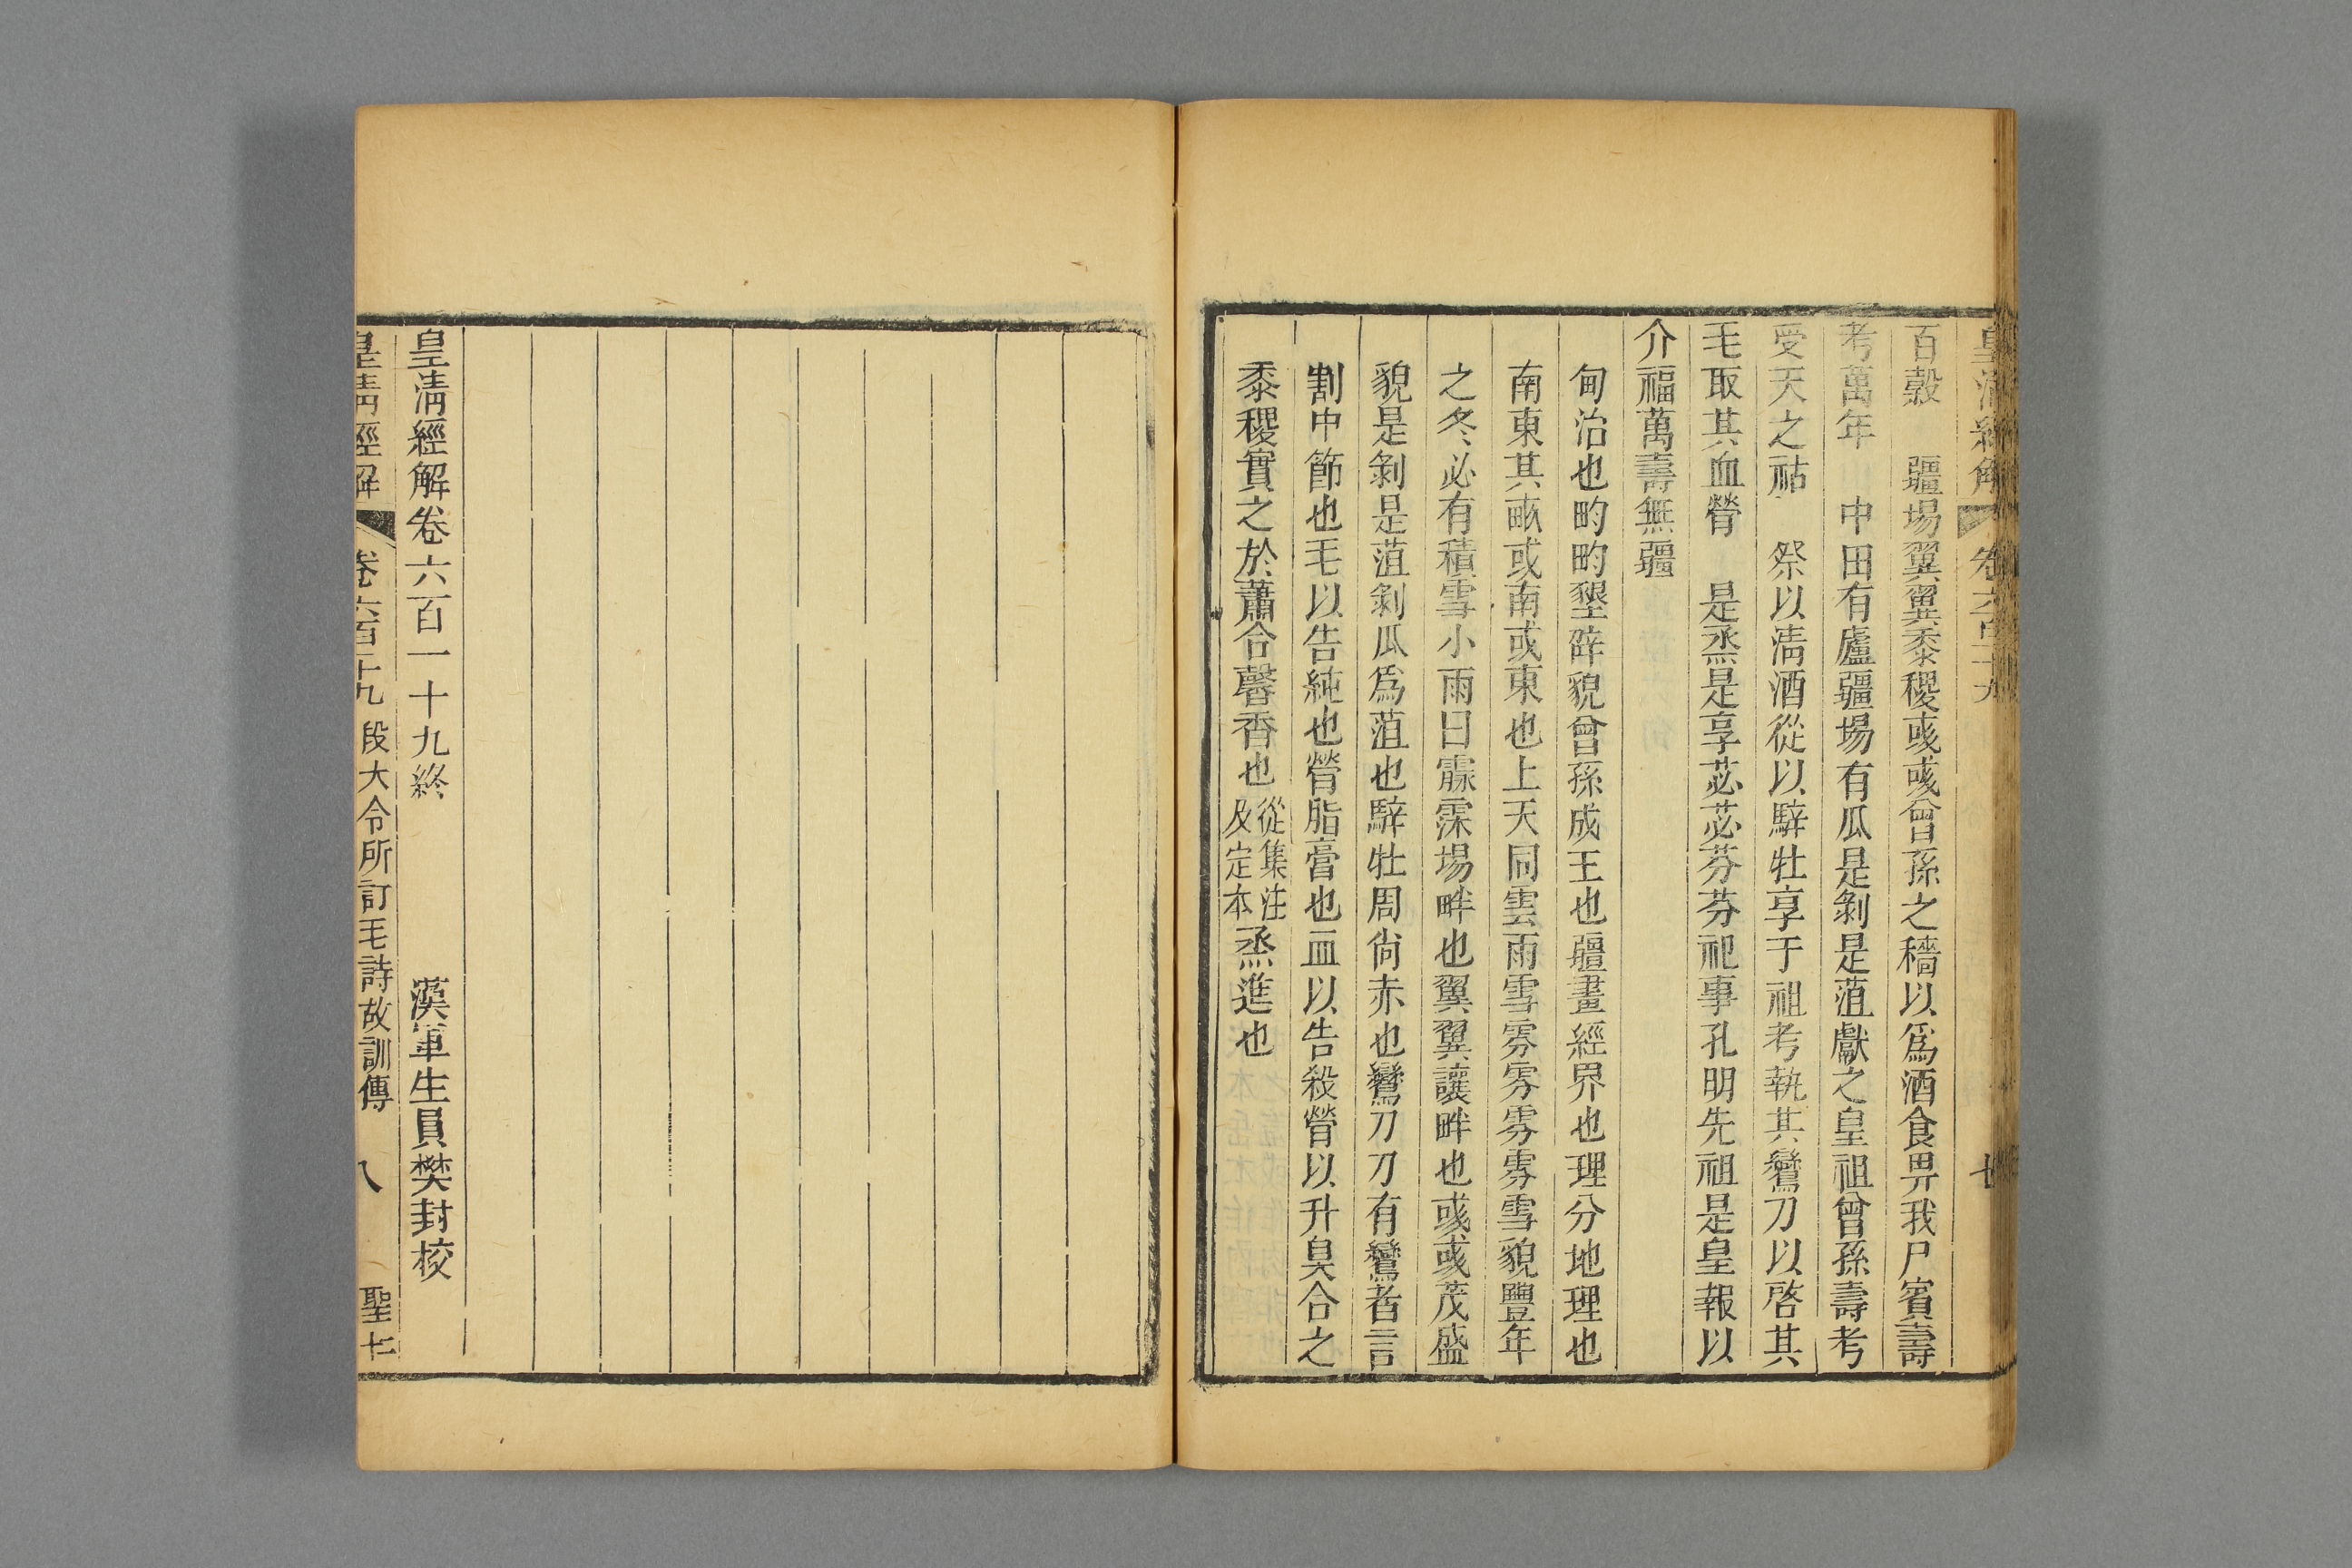 皇清經解 卷六百二十九
百穀 疆埸翼翼黍稷彧彧曾孫之穡以爲酒食畀我尸賓壽
考萬年 中田有廬疆埸有瓜是剝是菹獻之皇祖曾孫壽考
受天之祜 祭以淸酒從以騂牡享于祖考執其鸞刀以啓其
毛取其血膋 是烝是享苾苾芬芬祀事孔明先祖是皇報以
介福萬壽無疆
甸治也畇畇墾辟貌曾孫成王也疆畫經界也理分地理也
南東其畝或南或東也上天同雲雨雪雰雰雰雰雪貌豐年
之冬必有積雪小雨曰霢霂埸畔也翼翼讓畔也彧彧茂盛
貌是剝是菹剝瓜爲菹也騂牡周尙赤也鸞刀刀有鸞者言
割中節也毛以告純也膋脂膏也血以告殺膋以升臭合之
黍稷實之於蕭合馨香也從集注及定本烝進也
皇淸經解卷六百一十九終 漢軍生員樊封校
皇淸經解 卷六百十九 段大令所訂毛詩故訓傳 八 聖七